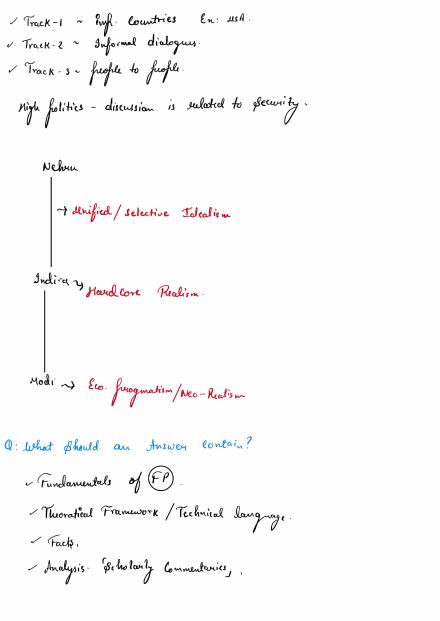 ✓ Track-1 ~ Inf. Countries Ex: USA.
✓ Track-2 ~ Informal dialogues.
✓ Track-3 ~ people to people.
High politics - discussion is related to Security.
Nehru
→ Unified/selective Idealism
Indira → Hardcore Realism.
Modi → Eco. pragmatism/Neo-Realism
Q: What should an Answer contain?
✓ Fundamentals of FP.
✓ Theoratical Framework/Technical language.
✓ Facts.
✓ Analysis. "Scholarly Commentaries".